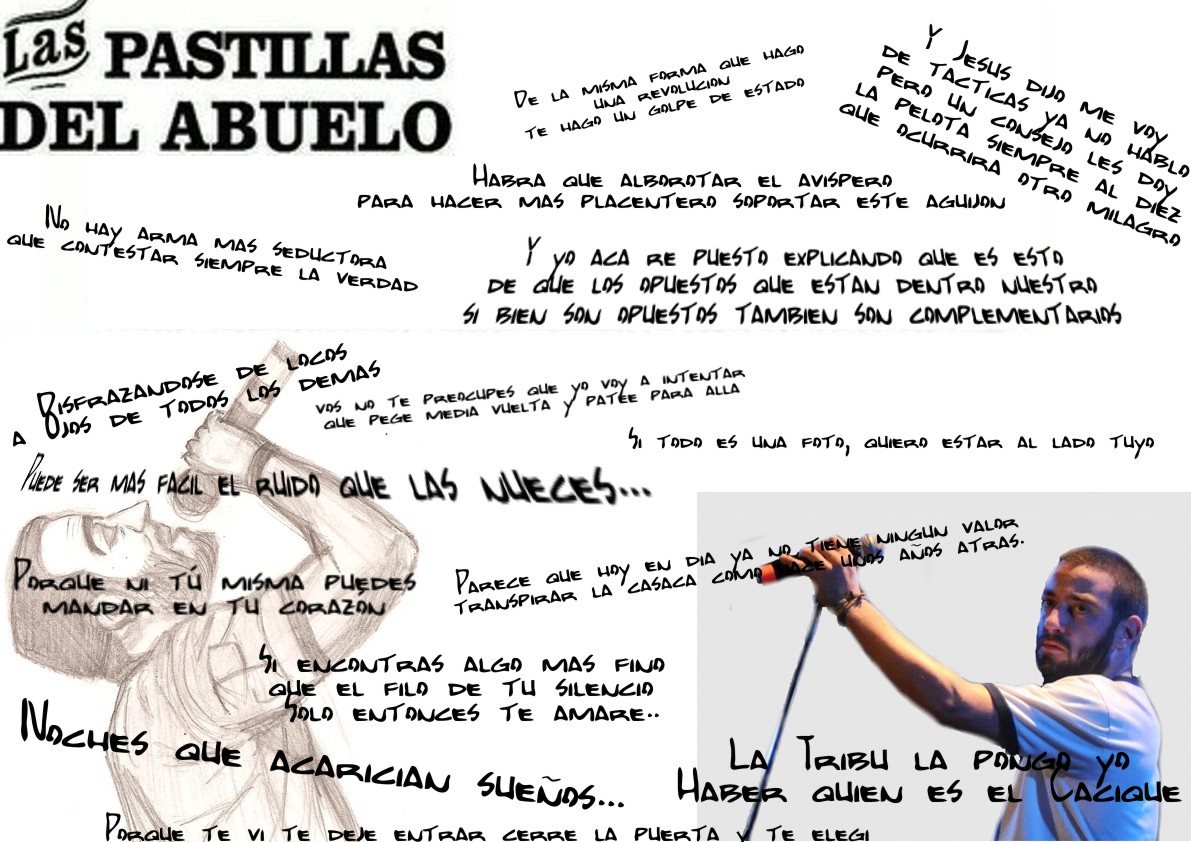 Las PASTILLAS
DEL ABUELO
DE LA MISMA FORMA QUE HAGO
UNA REVOLUCION
TE HAGO UN GOLPE DE ESTADO
Y JESUS DIJO ME VOY
DE TACTICAS YA NO HABLO
PERO UN CONSEJO LES DOY
LA PELOTA SIEMPRE AL DIEZ
QUE OCURRIRA OTRO MILAGRO
HABRA QUE ALBOROTAR EL AVISPERO
PARA HACER MAS PLACENTERO SOPORTAR ESTE AGUIJON
NO HAY ARMA MAS SEDUCTORA
QUE CONTESTAR SIEMPRE LA VERDAD
Y YO ACA RE PUESTO EXPLICANDO QUE ES ESTO
DE QUE LOS OPUESTOS QUE ESTAN DENTRO NUESTRO
SI BIEN SON OPUESTOS TAMBIEN SON COMPLEMENTARIOS
DISFRAZANDOSE DE LOCOS
A OJOS DE TODOS LOS DEMAS
VOS NO TE PREOCUPES QUE YO VOY A INTENTAR
QUE PEGE MEDIA VUELTA Y PATEE PARA ALLA
SI TODO ES UNA FOTO, QUIERO ESTAR AL LADO TUYO
PUEDE SER MAS FACIL EL RUIDO QUE LAS NUECES...
PORQUE NI TÚ MISMA PUEDES
MANDAR EN TU CORAZON
PARECE QUE HOY EN DIA YA NO TIENE NINGUN VALOR
TRANSPIRAR LA CASACA COMO HACE UNOS AÑOS ATRAS.
SI ENCONTRAS ALGO MAS FINO
QUE EL FILO DE TU SILENCIO
SOLO ENTONCES TE AMARE..
NOCHES QUE ACARICIAN SUEÑOS...
LA TRIBU LA PONGO YO
HABER QUIEN ES EL CACIQUE
PORQUE TE VI TE DEJE ENTRAR CERRE LA PUERTA Y TE ELEGI